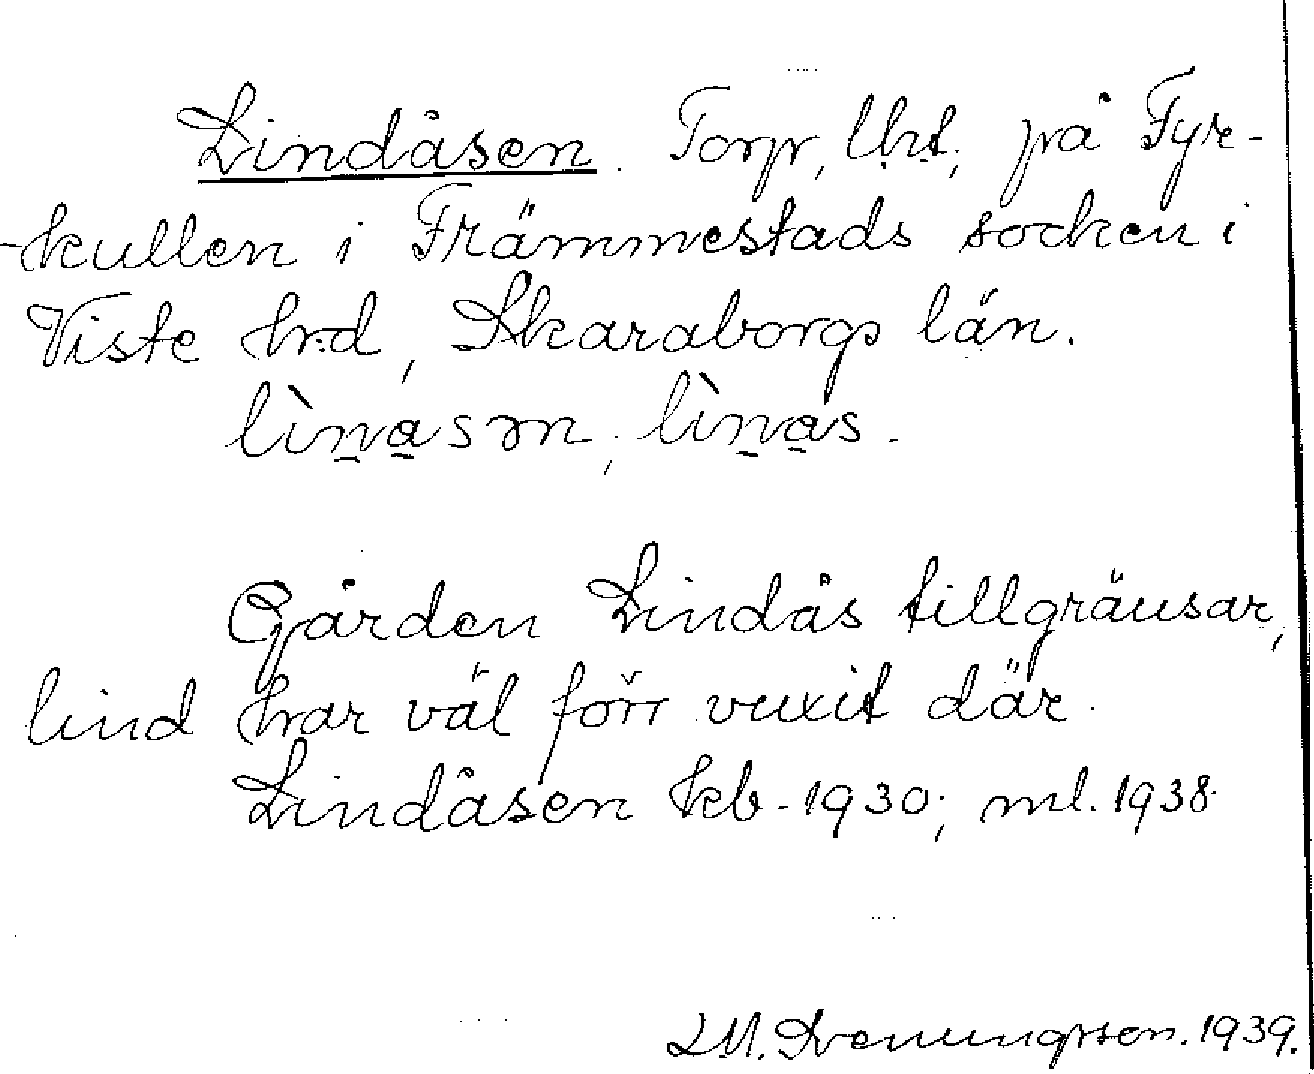 Lindåsen. Torp, lht, på Fyr-
-kullen i Främmestads socken i
Viste hrd, Skaraborgs län.
lìnasən, lìnas.
Gården Lindås tillgränsar,
lind har väl förr vuxit där.
Lindåsen kb. 1930; ml. 1938.
L.M. Svenungsson. 1939.